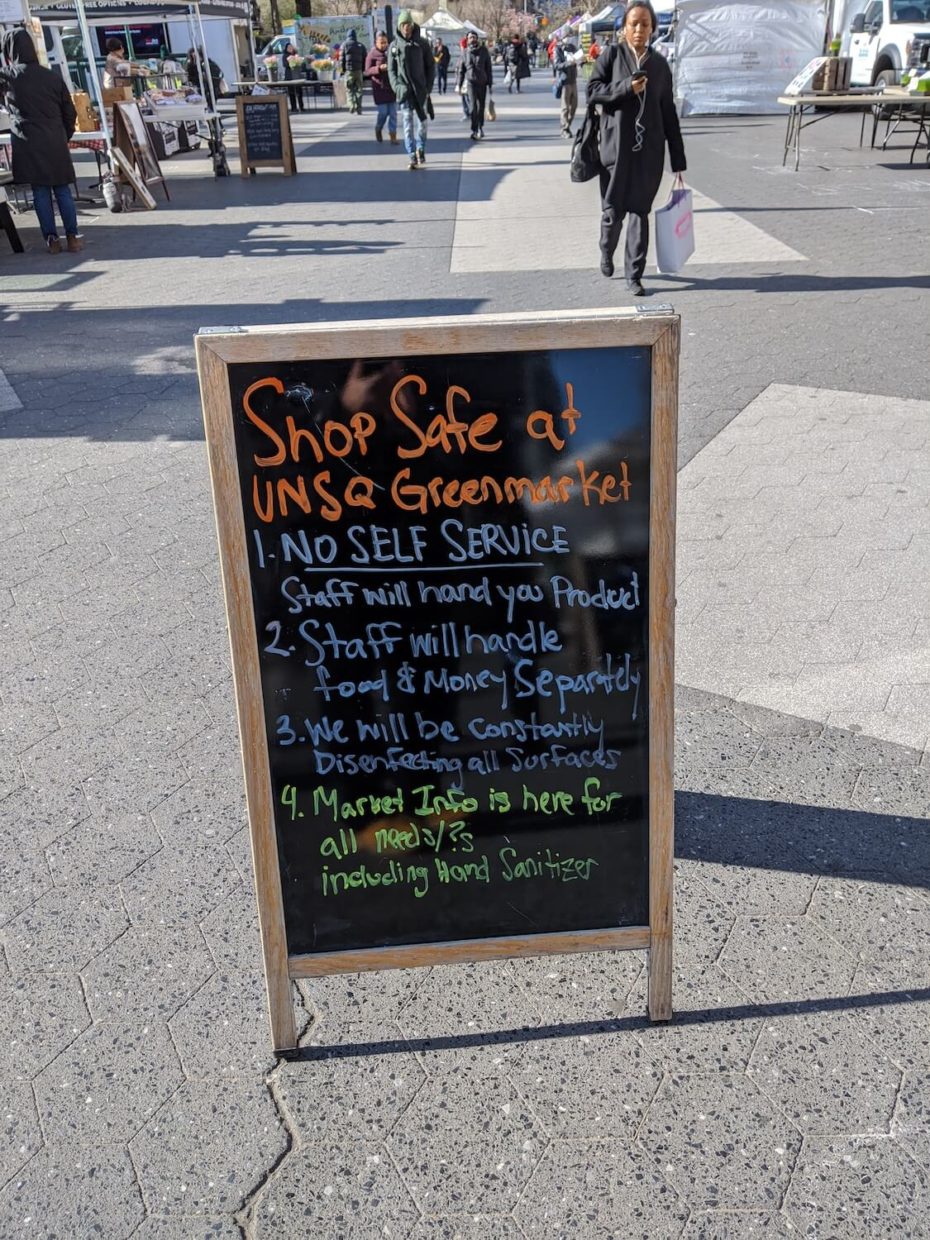 Shop Safe at
UNSQ Greenmarket
1. NO SELF SERVICE
Staff will hand you Product
2. Staff will handle
food & Money Separately
3. We will be constantly
Disenfecting all Surfaces
4. Market Info is here for
all needs/?s
including Hand Sanitizer